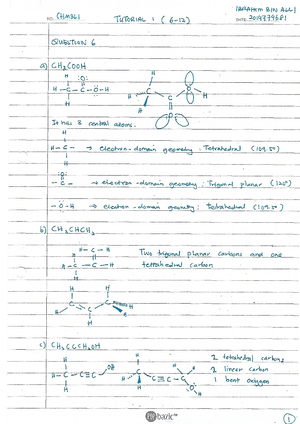 NO. CHM361
TUTORIAL 1 (6-12)
IBRAHEM BIN ALLI
DATE 2019379681
QUESTION 6
a) CH3COOH
It has 3 central atoms.
→ electron-domain geometry: Tetrahedral (109.5°)
→ electron-domain geometry: Trigonal planar (120°)
→ electron-domain geometry: Tetrahedral (109.5°)
b) CH3CHCH2
Two trigonal planar carbons and one
tetrahedral carbon
c) CH3CCCH2OH
2 tetrahedral carbons
2 linear carbon
1 bent oxygen
1